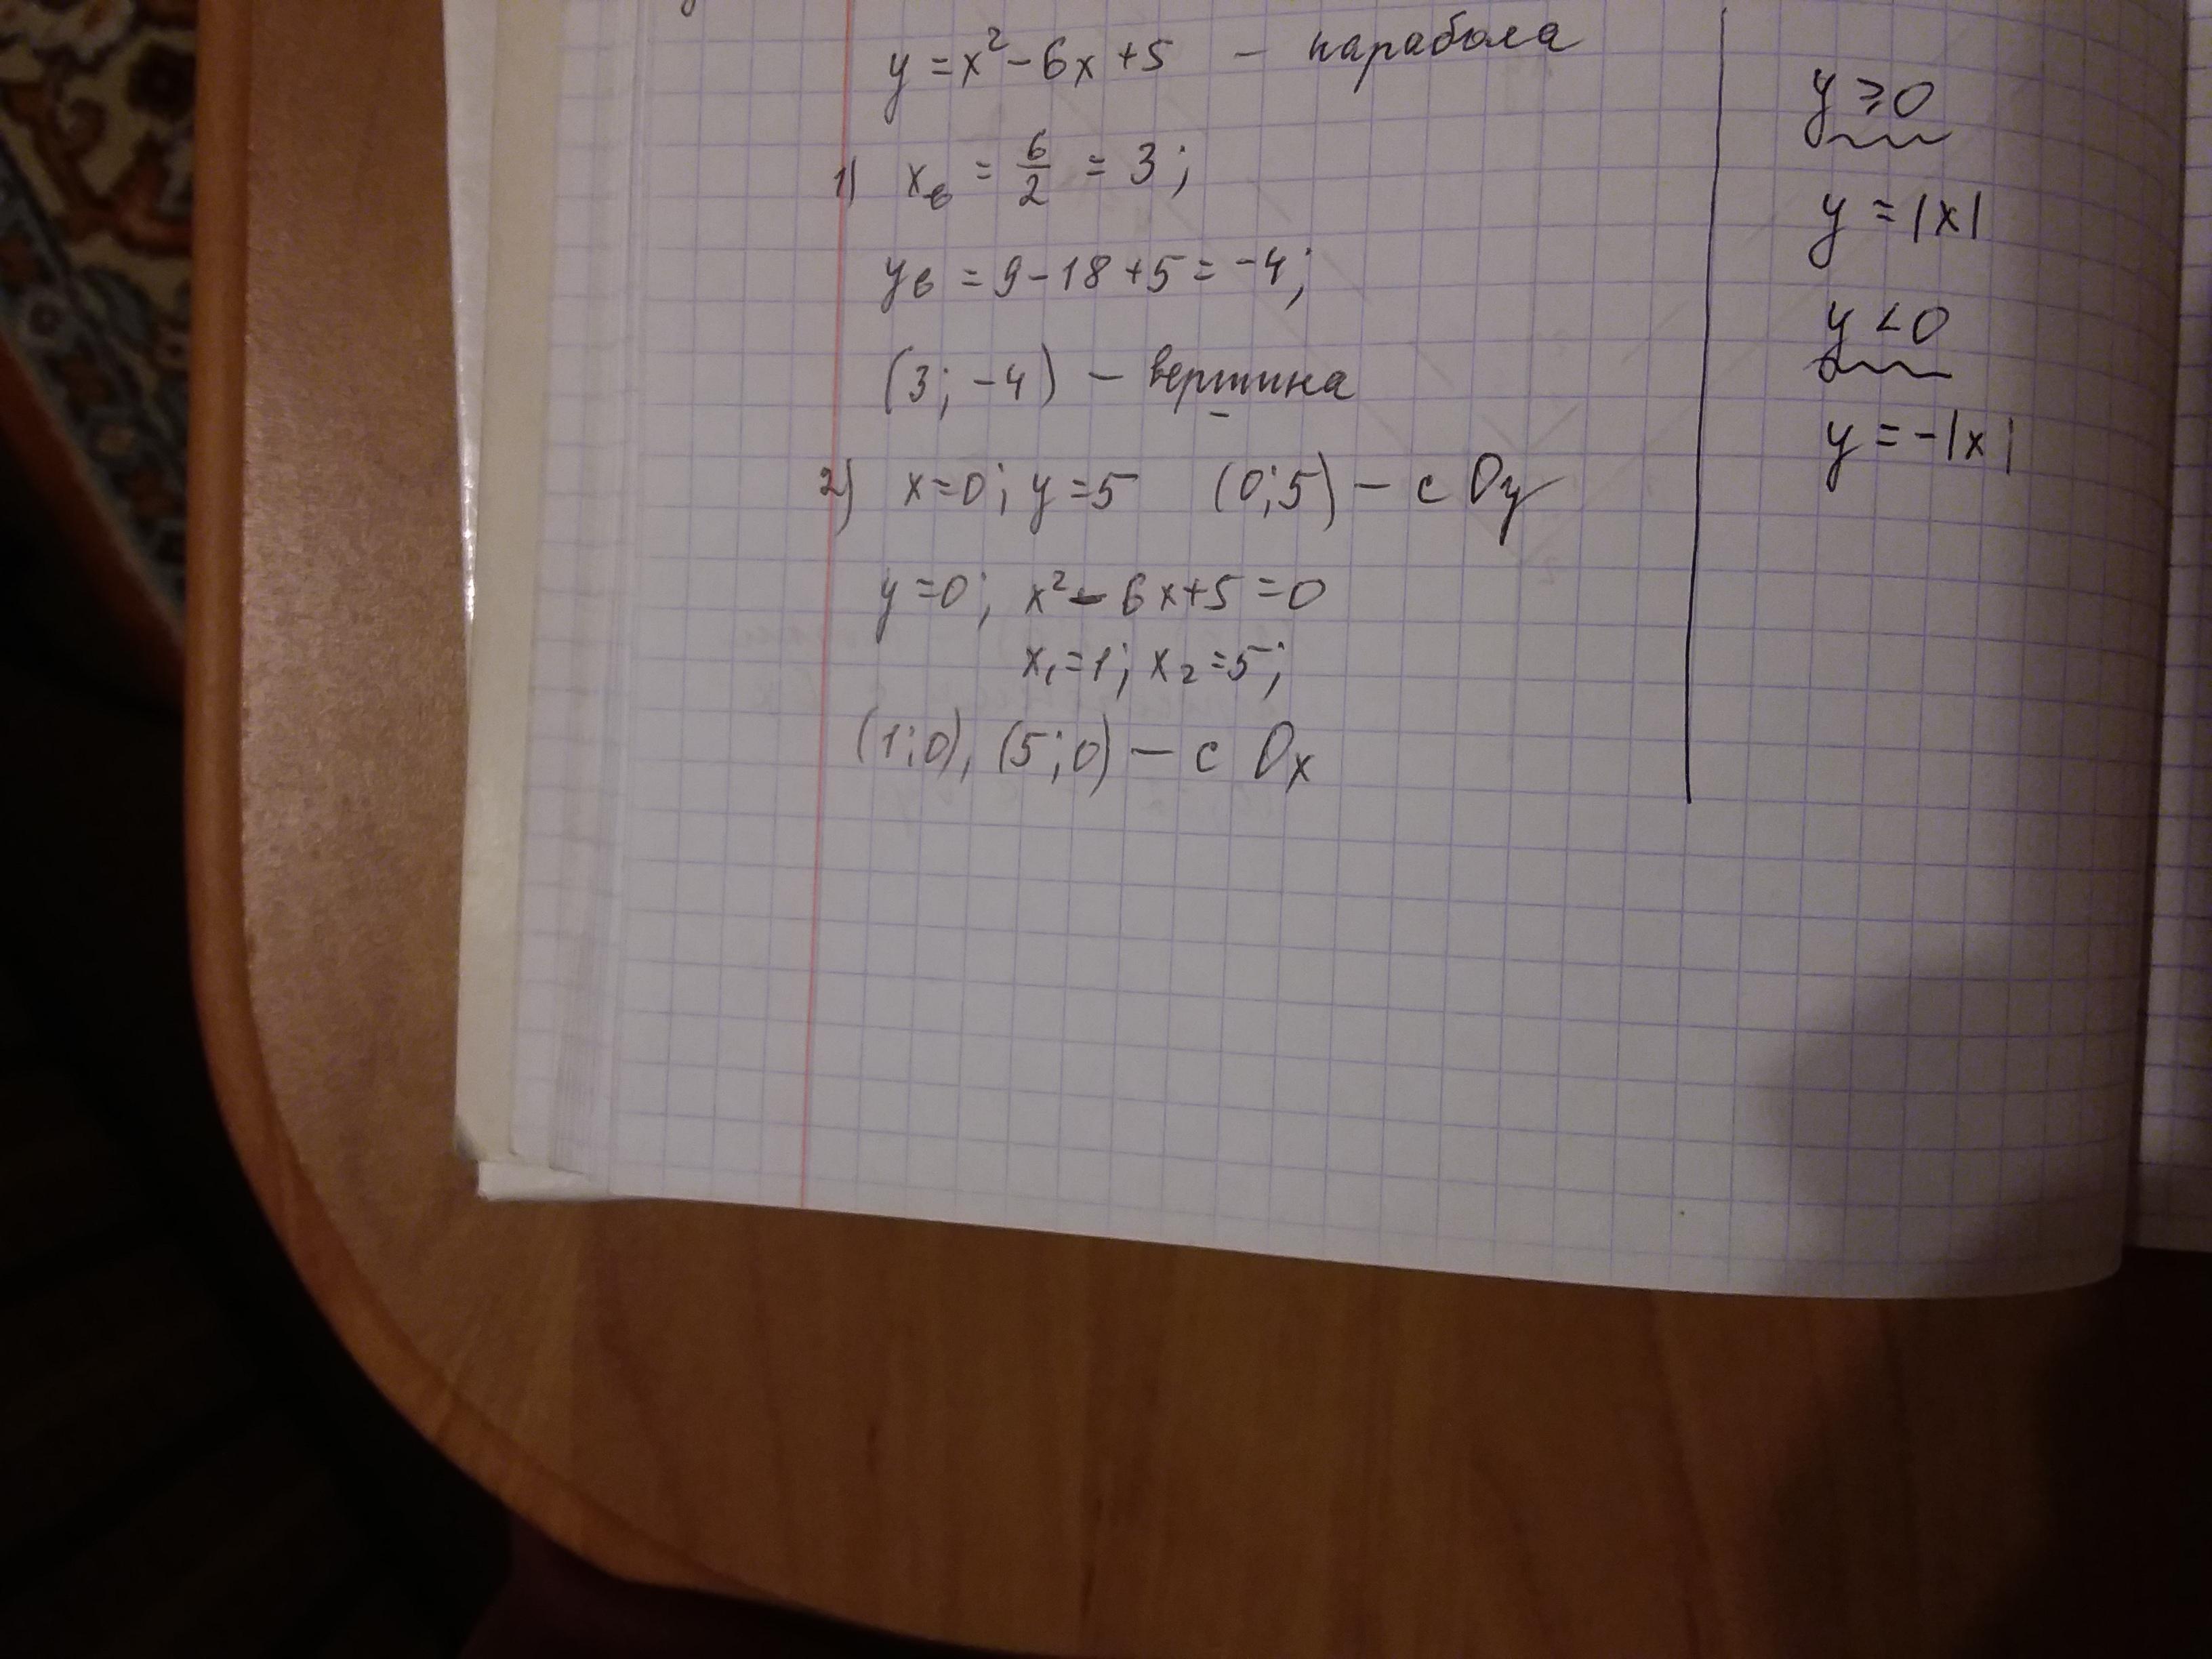 y = x² - 6x + 5 - парабола
1) xв = 6/2 = 3;
yв = 9 - 18 + 5 = -4;
(3; -4) - вершина
2) x=0; y=5 (0;5) - с Oy
y=0; x² - 6x+5=0
x₁=1; x₂=5;
(1;0), (5;0) - с Ox
y ≥ 0
y = |x|
y < 0
y = -|x|